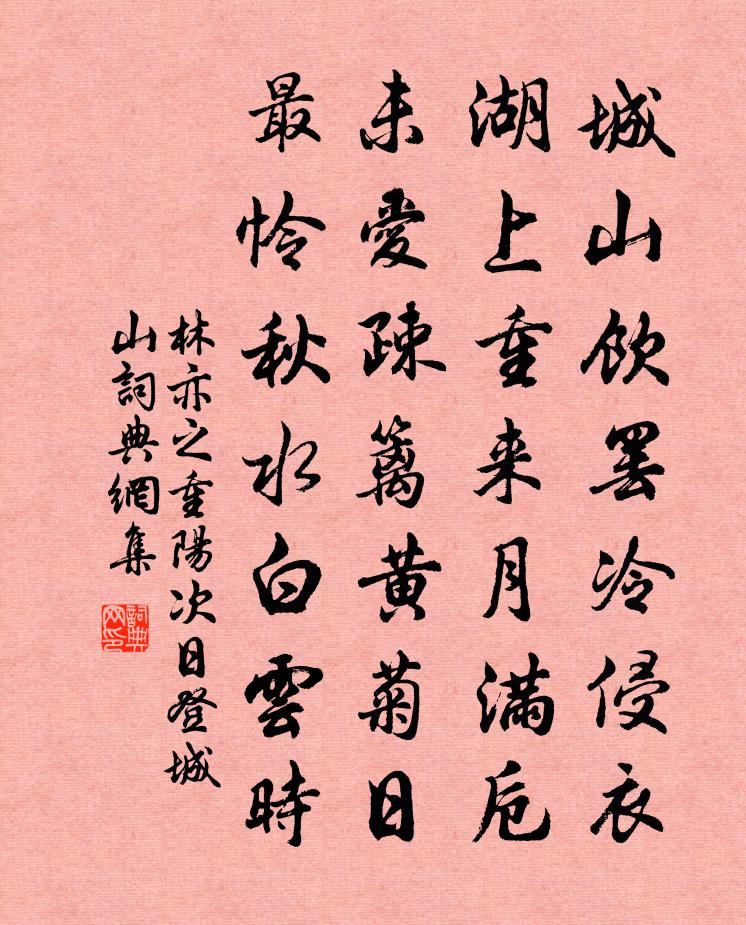 城山飲罷冷侵衣
湖上重来月滿卮
未愛疎籬黄菊日
最怜秋水白雲時
林亦之重陽次日登城
山詞典網集
詞典网印